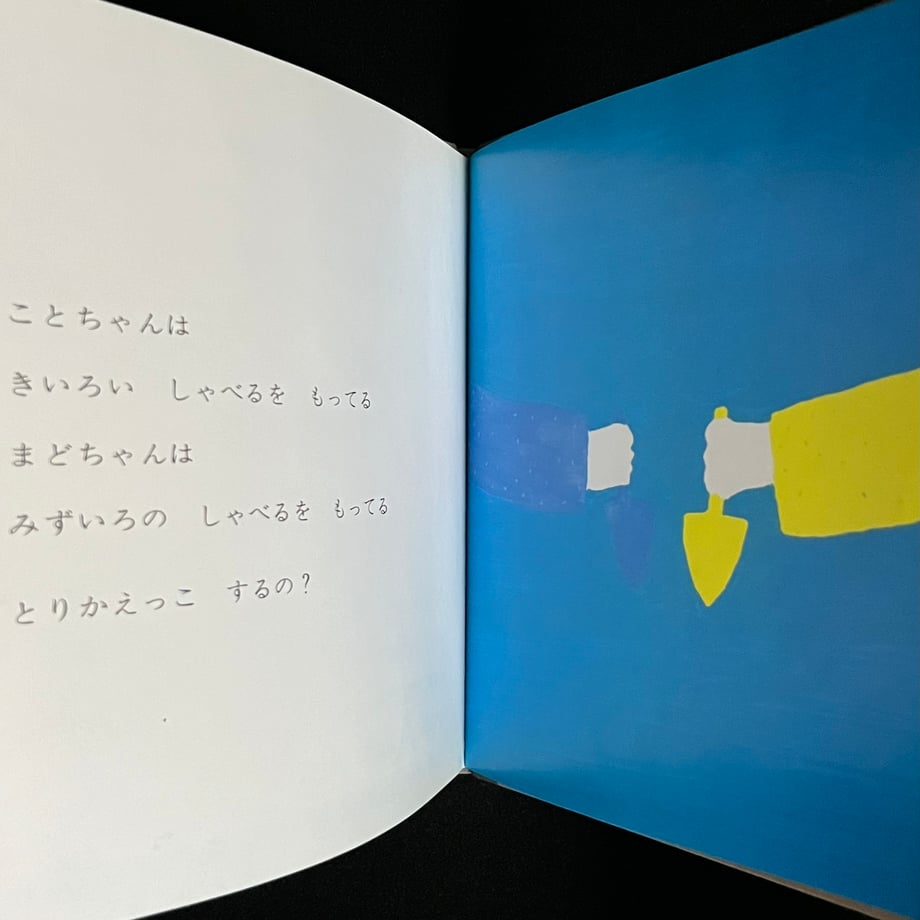 ことちゃんは
きいろい　しゃべるを　もってる
まどちゃんは
みずいろの　しゃべるを　もってる
とりかえっこ　するの？